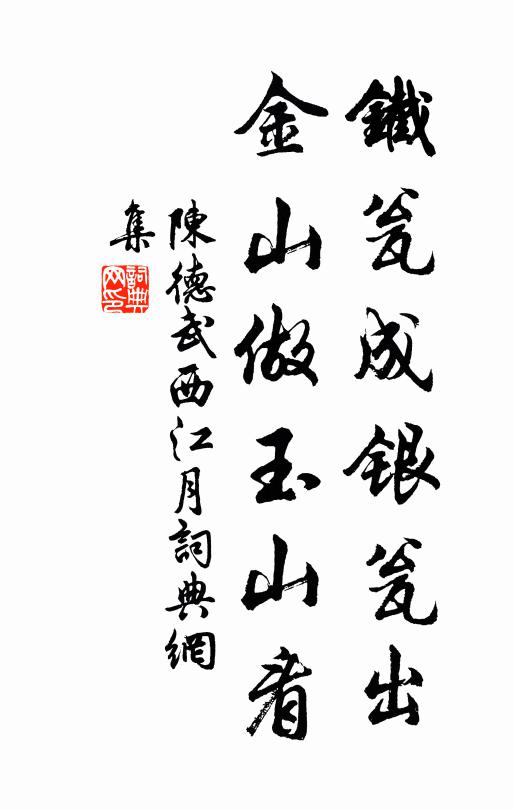 鐵瓮成銀瓮出
金山做玉山看
陳德武西江月詞典網
集
詞典網印